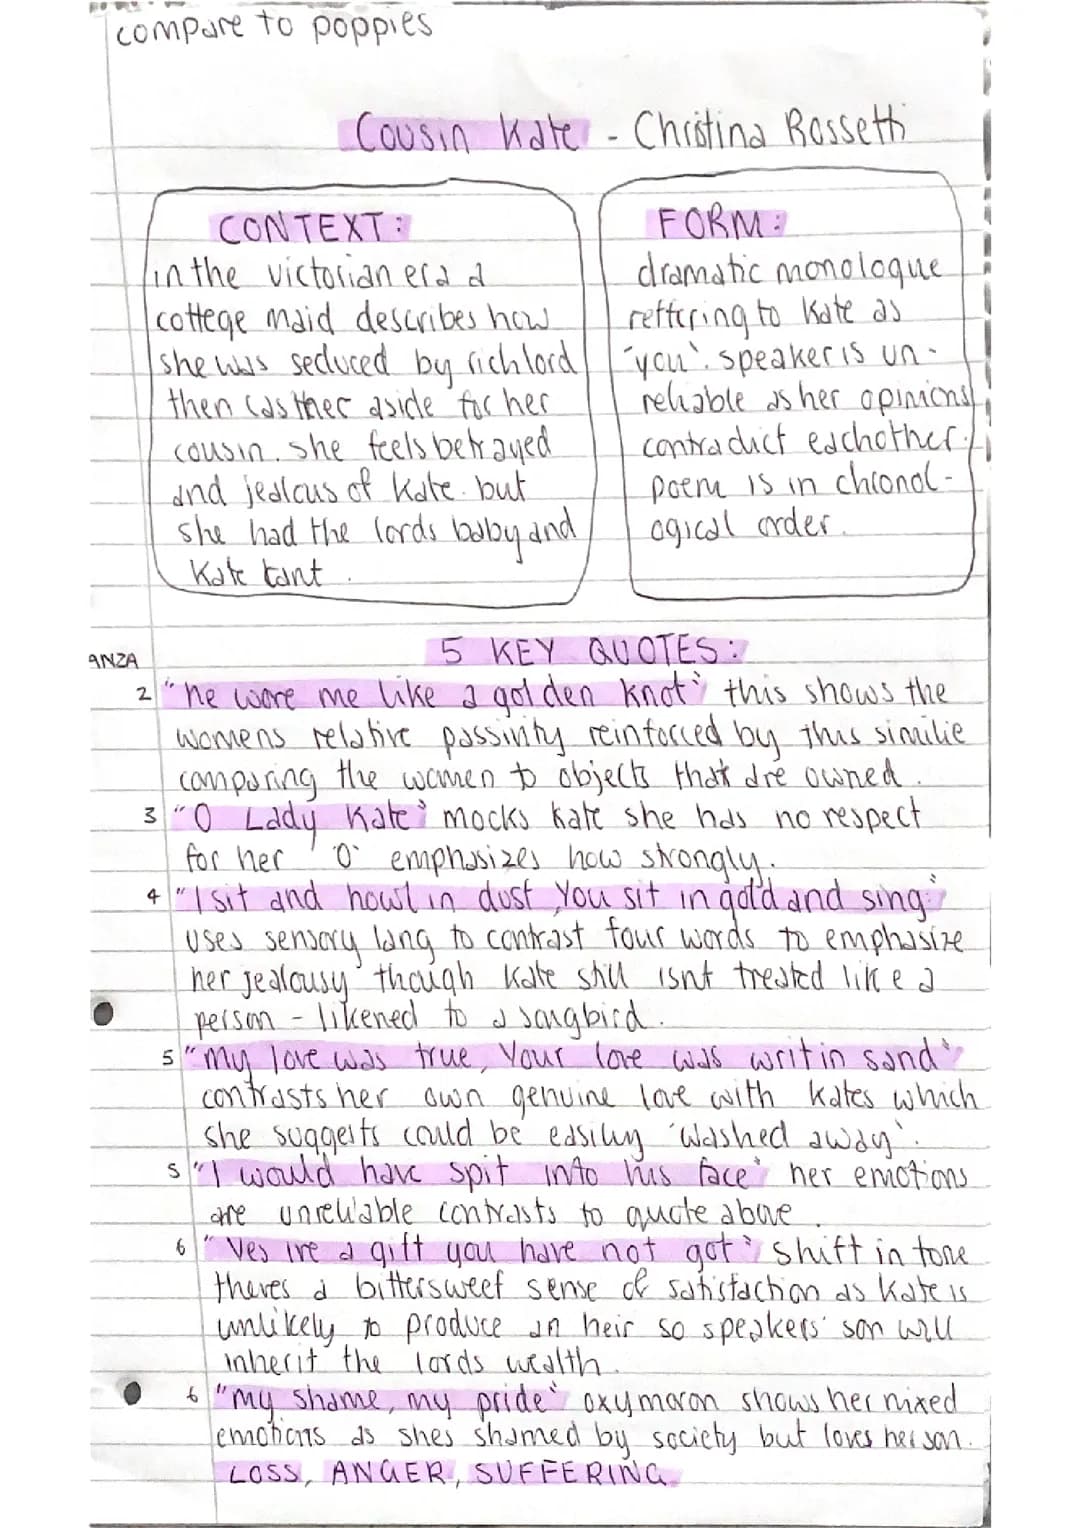 compare to poppies
Cousin Kate - Christina Rossetti
CONTEXT:
in the victorian era a
cottege maid describes how
she was seduced by rich lord
then cast her aside for her
cousin. she feels betrayed
and jealous of Kate. but
she had the lords baby and
Kate cant.
FORM:
dramatic monologue
reffering to Kate as
'you'. speaker is un-
reliable as her opinions
contradict eachother.
poem is in chronol-
ogical order.
5 KEY QUOTES:
ANZA
2 "he wore me like a golden knot" this shows the
womens relative passivity reinforced by this similie
comparing the women to objects that are owned.
3 "O Lady Kate" mocks Kate she has no respect
for her 'O' emphasizes how strongly.
4 "I sit and howl in dust You sit in gold and sing"
uses sensory lang to contrast four words to emphasize
her jealousy though Kate still isnt treated like a
person - likened to a songbird.
5 "my love was true, Your love was writ in sand"
contrasts her own genuine love with Kates which
she suggests could be easily 'washed away'.
5 "I would have spit into his face" her emotions
are unreliable contrasts to quote above.
6 "Yes ive a gift you have not got" shift in tone
theres a bittersweet sense of satisfaction as Kate is
unlikely to produce an heir so speakers' son will
inherit the lords wealth.
6 "my shame, my pride" oxymoron shows her mixed
emotions as shes shamed by society but loves her son.
LOSS, ANGER, SUFFERING